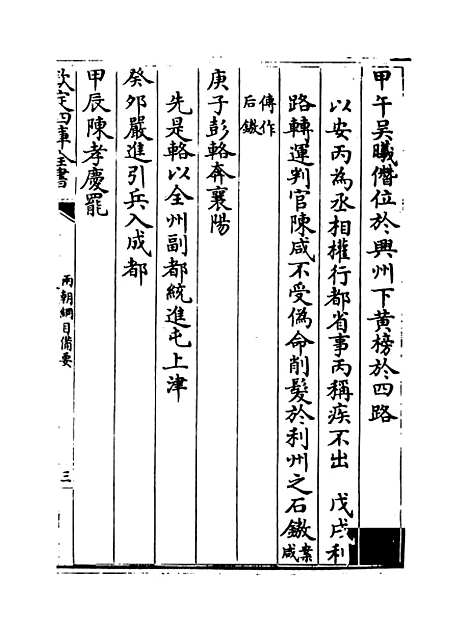 甲午吴曦僭位於興州下黄榜於四路
以安丙為丞相權行都省事丙稱疾不出　戊戌利
路轉運判官陳咸不受偽命削髮於利州之石鐓案咸
傳作石鐓
庚子彭輅奔襄陽
先是輅以全州副都統進屯上津
癸夘嚴進引兵入成都
甲辰陳孝慶罷
欽定四庫全書
兩朝綱目備要
三